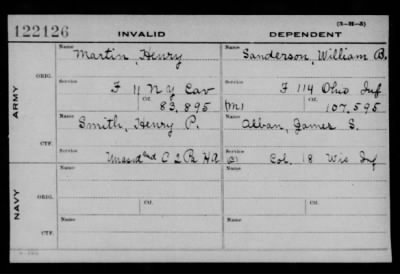 122126 INVALID DEPENDENT (3-21-3)
Name Martin, Henry Name Sanderson, William B.
ORIG. Service F 11 N Y Cav Service F 114 Ohio Inf
Ctf. 83,895 (M) Ctf. 107,595
ARMY
Name Smith, Henry P. Name Alban, James S.
CTF. Service Unassd C 2 Pa H A Service Col. 18 Wis Inf
Name Name
ORIG. Service Service
Ctf. Ctf.
NAVY
Name Name
CTF.